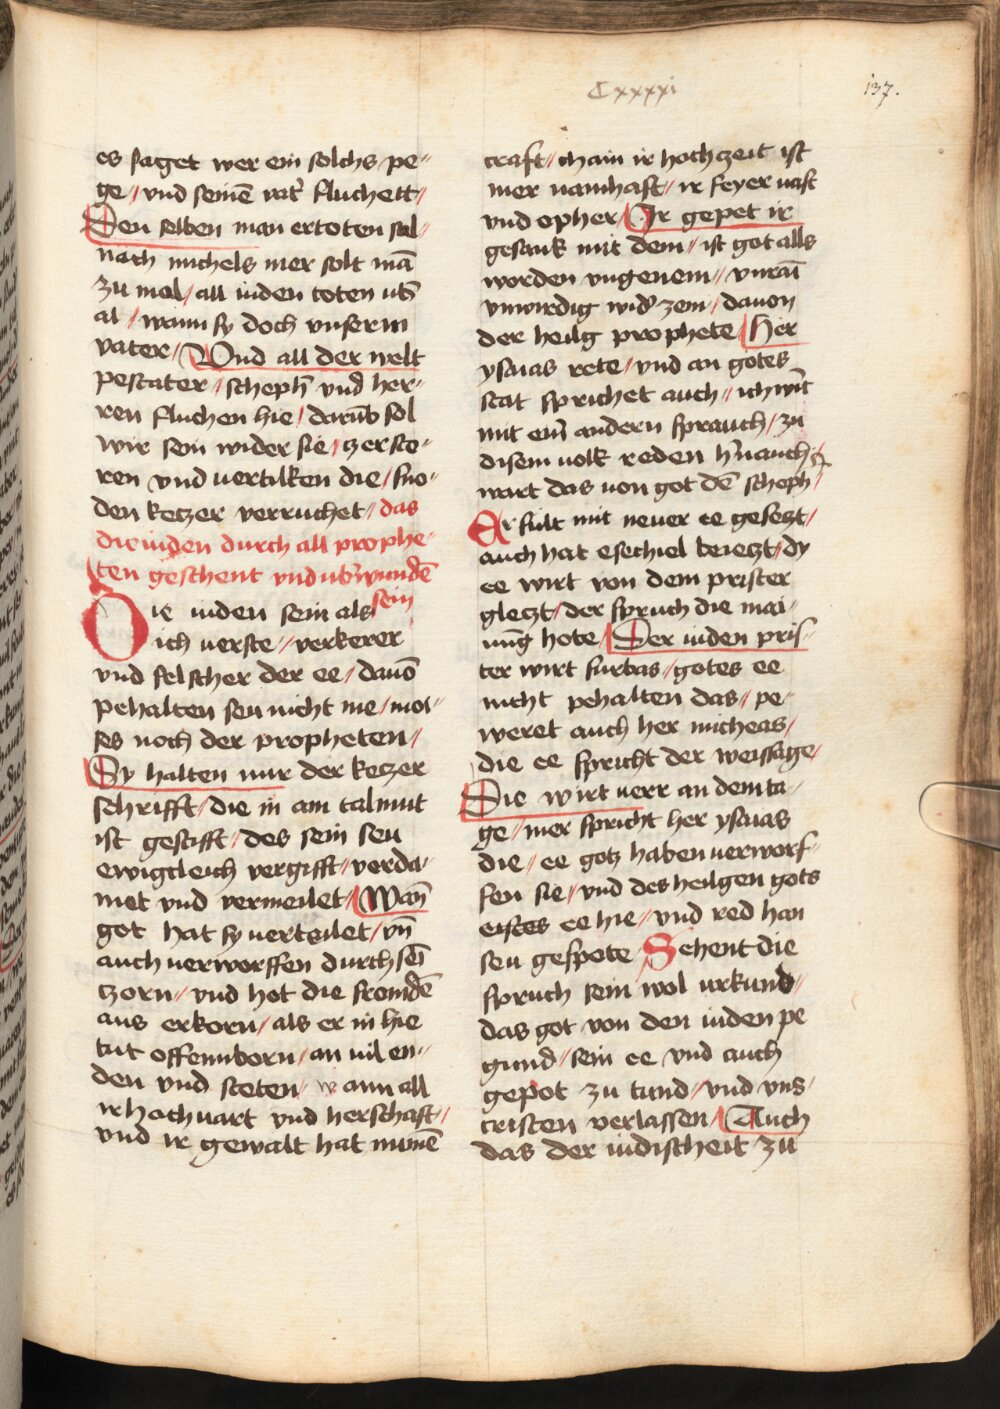 Cxxxxi
137.
es saget wer ein solchs / pe-
ge / vnd seinē vat' fluchett /
Den selben man ertoten sal /
nach michels mer solt mā
zu mol / all iuden toten vb'
al / wann sy doch vnserm
vater / Vnd all der welt
pestater / scheph' vnd her-
ren fluchen hie / darūb sol
wir sein wider sie / zersto-
ren vnd uertilken die / sno-
den ketzer verruchet / das
die iuden durch all prophe-
ten geschent vnd vb'wundē
sein
Die iuden sein als
ich uerste / verkerer
vnd felscher der ee / dauō
pehalten seu nicht me / moi-
ses noch der propheten /
Dy halten nur der ketzer
schrifft / die in am talmut
ist gestifft / des sein seu
ewigcleich vergifft / verda-
met vnd vermeilet / Wan̄
got hat sy uerteilet / vn̄
auch uerworffen durch sei
zorn / vnd hot die fromdē
aus erkorn / als er in hie
tut offennborn / an uil en-
den vnd steten / wann all
ir hochuart vnd herschaft /
vnd ir gewalt hat nimē
craft / chain ir hochzeit ist
mer namhaft / ir feyer uast
vnd opher / Ir gepet ir
gesank mit dem / ist got alls
worden vngenem / vnrai
vnwirdig wid' zem / dauon
der heilg prophete / Her
ysaias rete / vnd an gotes
stat sprichet auch / ich wirt
mit eim andern sprauch / zu
disem uolk reden h'nauch /
wart das uon got dē scheph'
Er fult mit neuer ee gesetzt /
auch hat esechiel beretzt / dy
ee wirt von dem prister
gletzt / der spruch die mai-
nūg hote / Der iuden pris-
ter wirt furbas / gotes ee
nicht pehalten das / pe-
weret auch her micheas /
die ee spricht der weissage /
Die wirt uerr an dem ta-
ge / mer spricht her ysaias
die / ee gotz haben uerworf-
fen sie / vnd des heilgen gots
eistes ee hie / vnd red han
seu gespote Sehent die
spruch sein wol urkund /
das got von den iuden pe
gund / sein ee vnd auch
gepot zu tund / vnd vns /
cristen verlassen / Auch
das der iudischeit zu